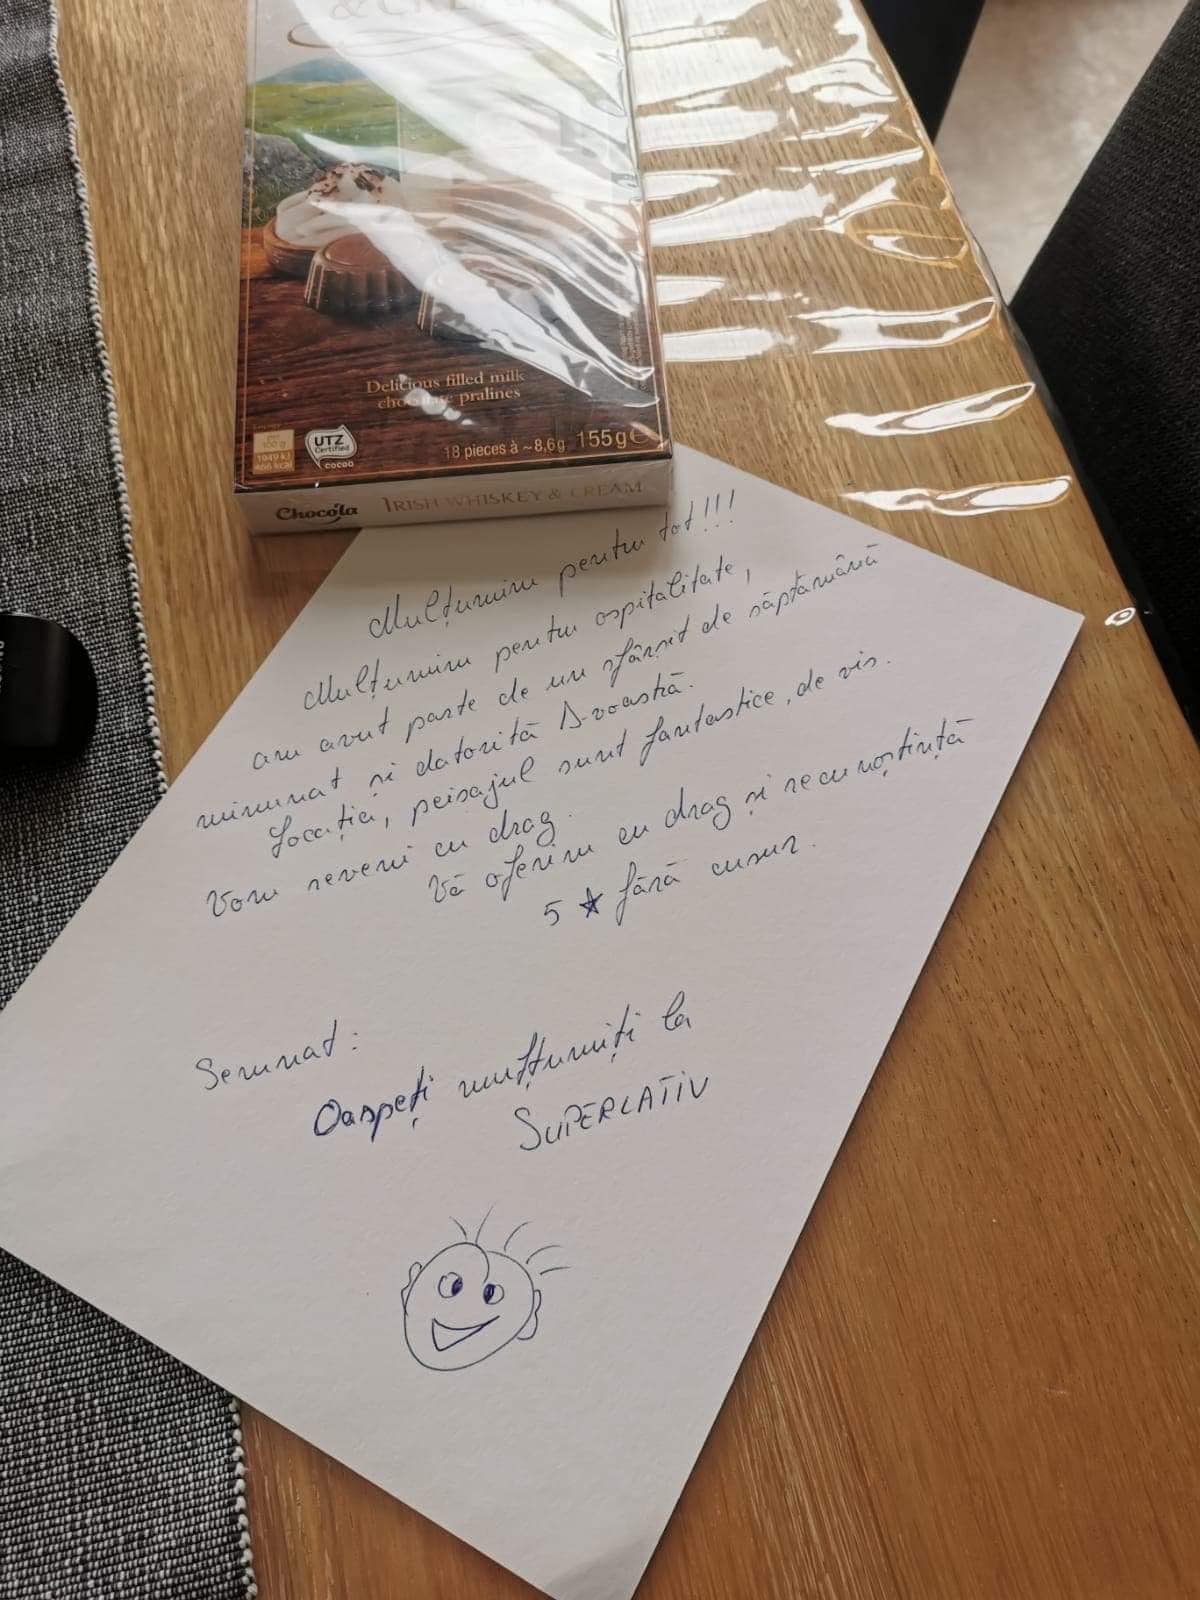 & CREAM
Delicious filled milk
chocolate pralines
100 g
1949 kJ
466 kcal
UTZ
Certified
cocoa
18 pieces à ~8,6g 155g e
Choco'la IRISH WHISKEY & CREAM
Mulțumim pentru tot!!!
Mulțumim pentru ospitalitate,
am avut parte de un sfârșit de săptămână
minunat și datorită D-voastră.
Locația, peisajul sunt fantastice, de vis.
Vom reveni cu drag.
Vă oferim cu drag și recunoștință
5 ★ fără cusur.
Semnat:
Oaspeți mulțumiți la
SUPERLATIV